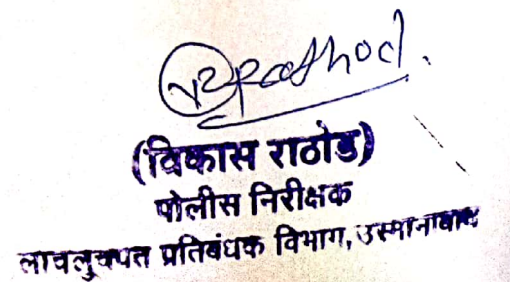 Rathod.
(विकास राठोड)
पोलीस निरीक्षक
लाचलुचपत प्रतिबंधक विभाग, उस्मानाबाद